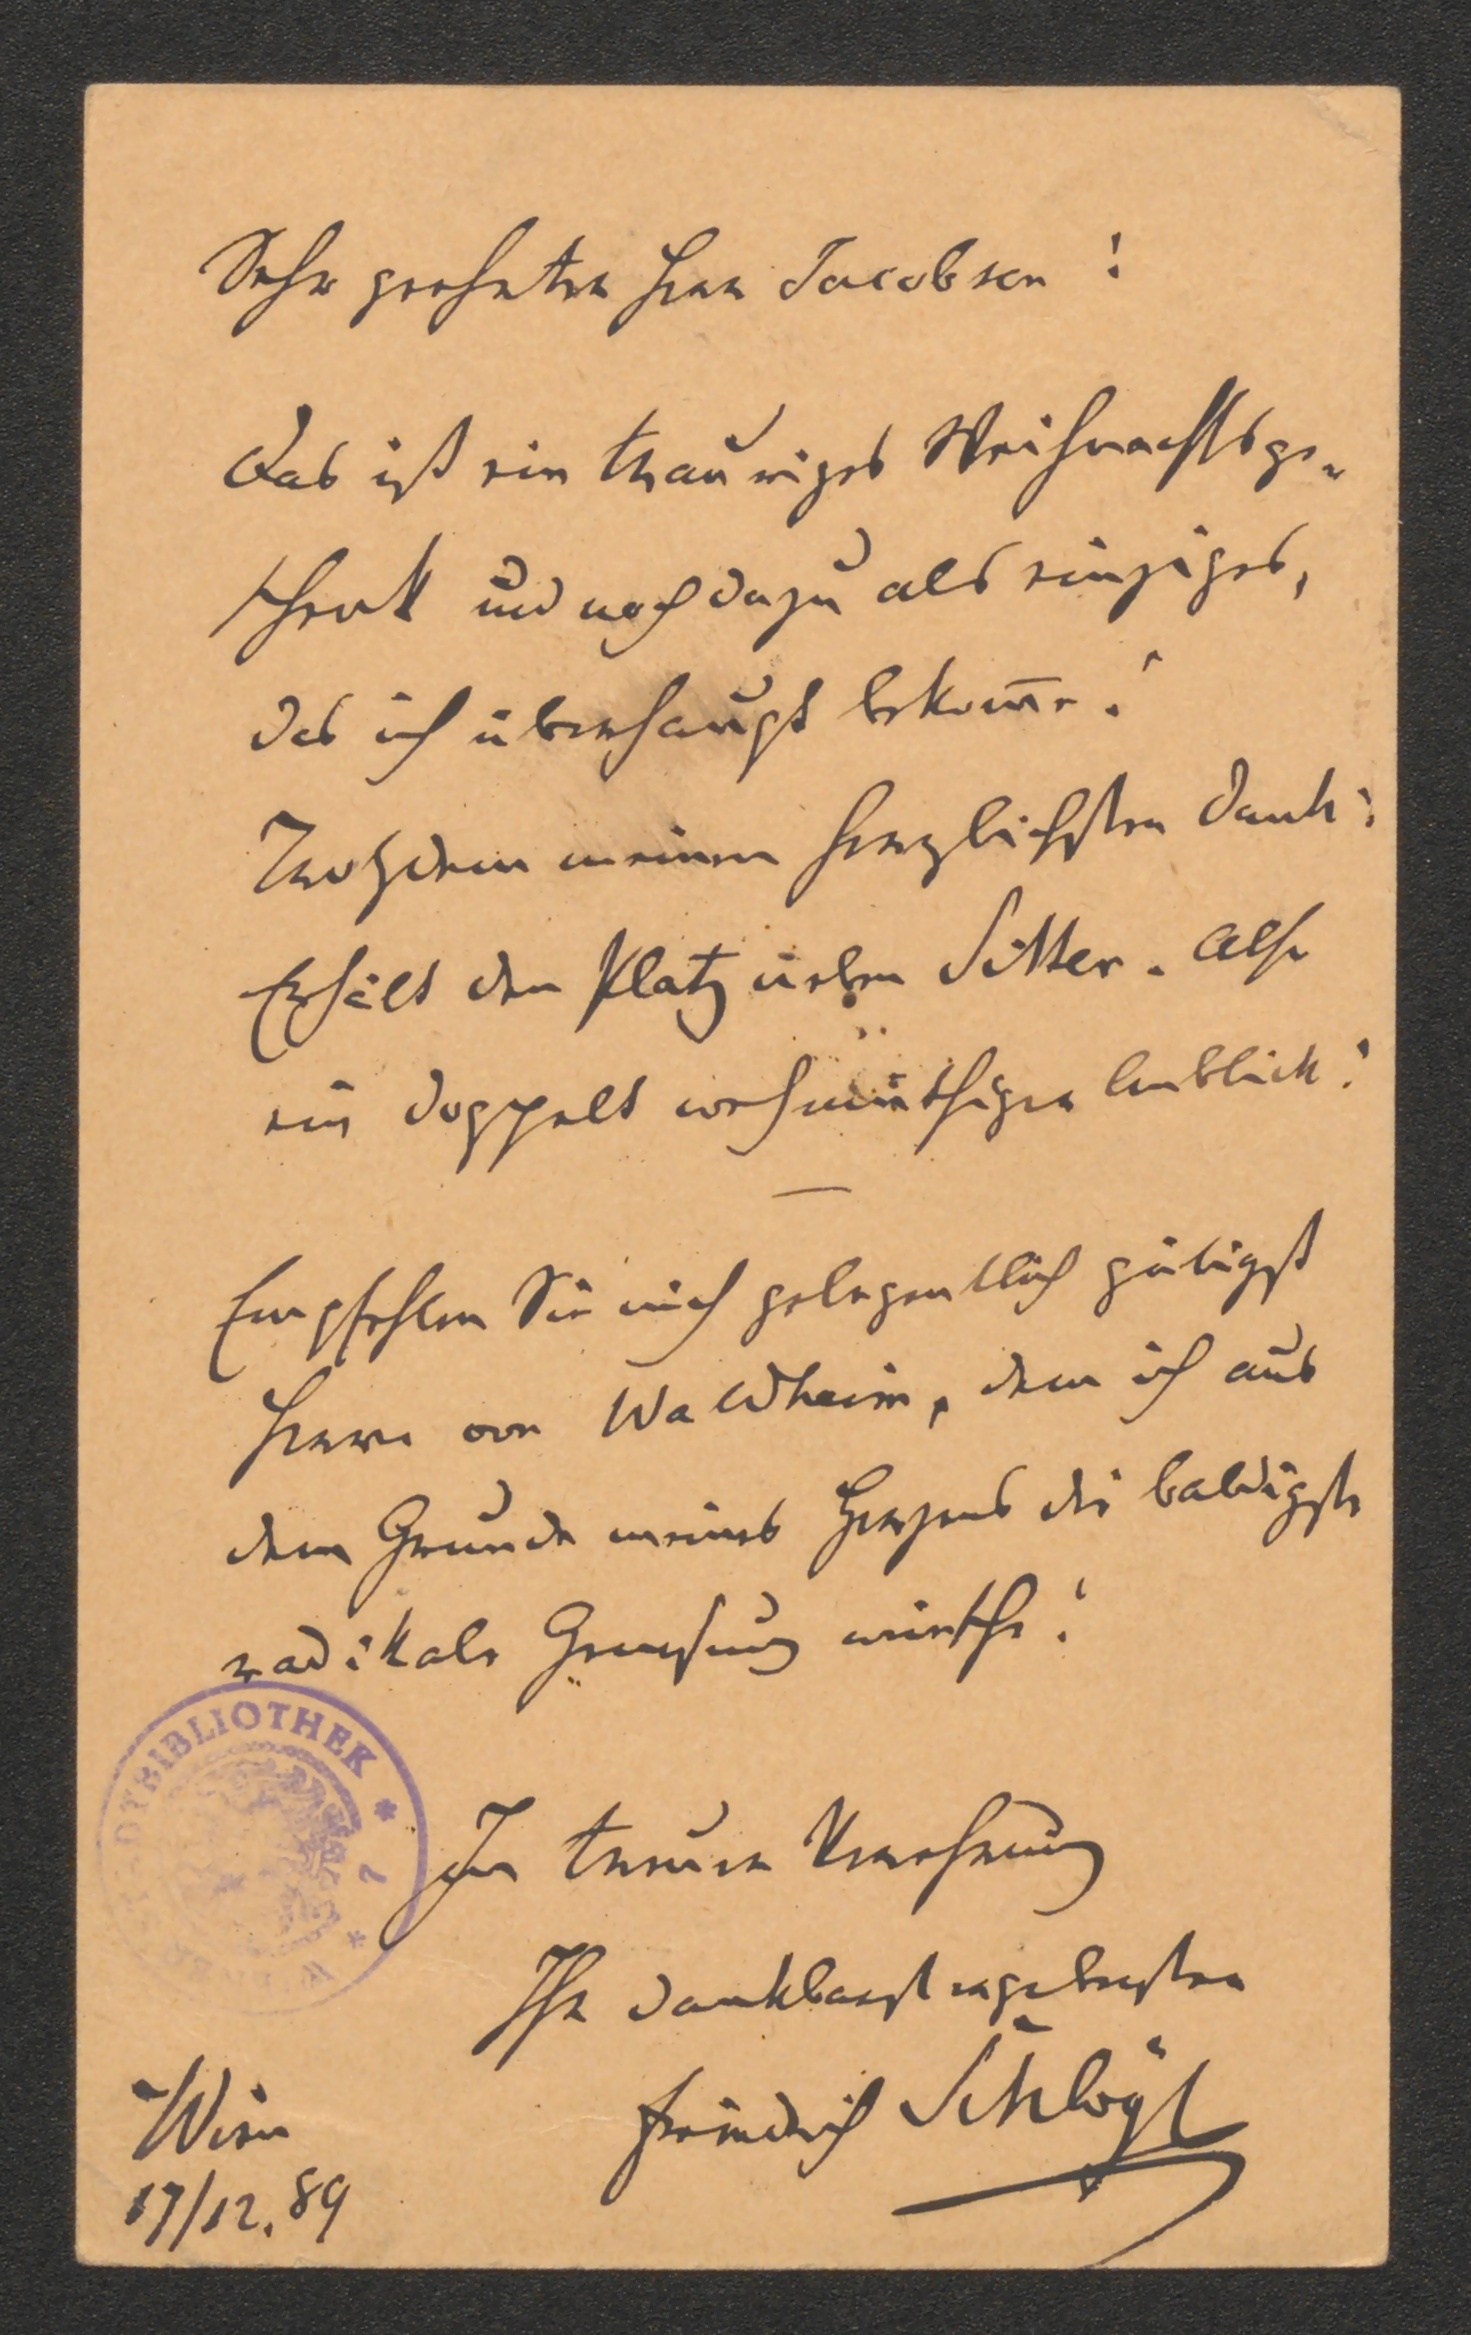 Sehr geehrter Herr Jacobsen!
Das ist ein trauriges Weihnachtsge-
schenk und noch dazu als einziges,
das ich überhaupt bekom̄e!
Trotzdem meinen herzlichsten Dank!
Erhält den Platz neben Sitter. Also
ein doppelt wehmüthiger Anblick!
—
Empfehlen Sie mich gelegentlich gütigst
Herrn von Waldheim, dem ich aus
dem Grunde meines Herzens die baldigste
radikale Genesung wünsche!
In treuer Verehrung
Ihr dankbarst ergebenster
Friedrich Schlögl
Wien
17/12. 89
STADTBIBLIOTHEK * * WIENER